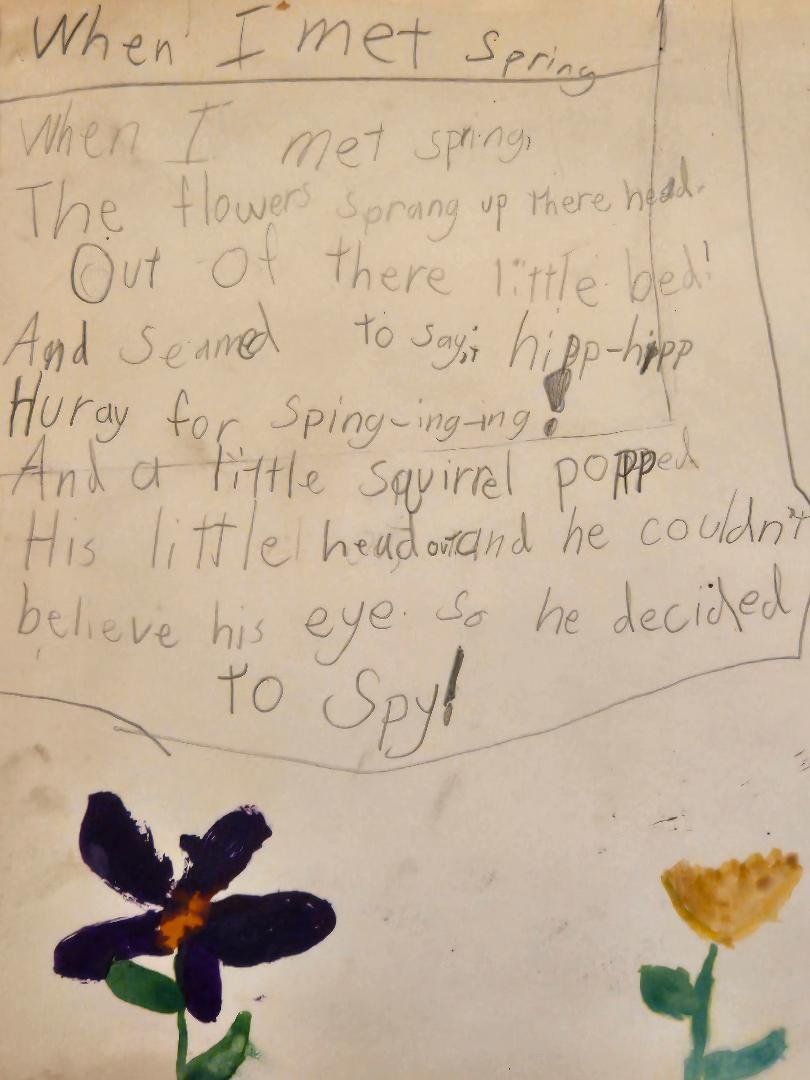 When I met spring
When I met spring,
The flowers sprang up there head.
Out of there little bed!
And seamed to say, hipp-hipp
Huray for sping-ing-ing!
And a little squirrel popped
His little head out and he couldn't
believe his eye. So he decided
To Spy!